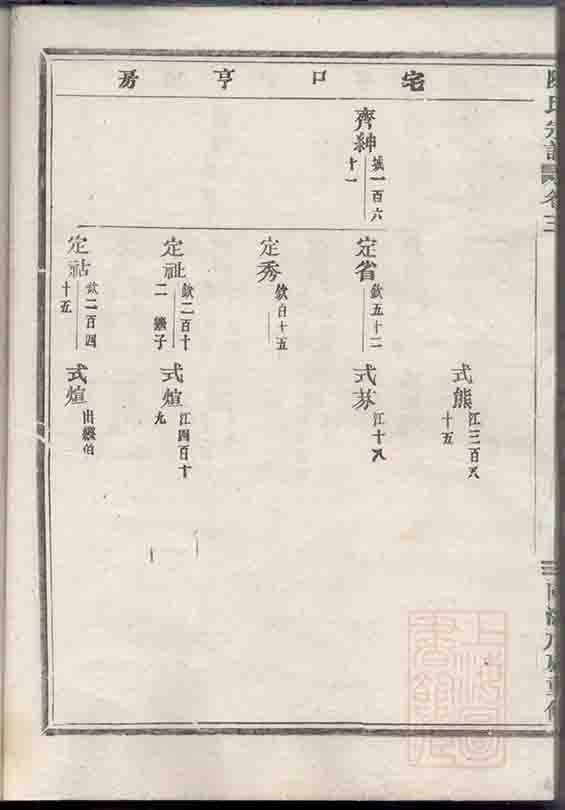 宅口亨房
氏宗譜
卷三
式熊
江三百八
十五
齊紳
城一百六
十一
定省
欽五十二
式芬
江十八
定秀
欽百十五
定祉
欽二百十
二 繼子
式煊
江四百十
九
定祜
欽二百四
十五
式煊
出繼伯
上海圖
書館藏